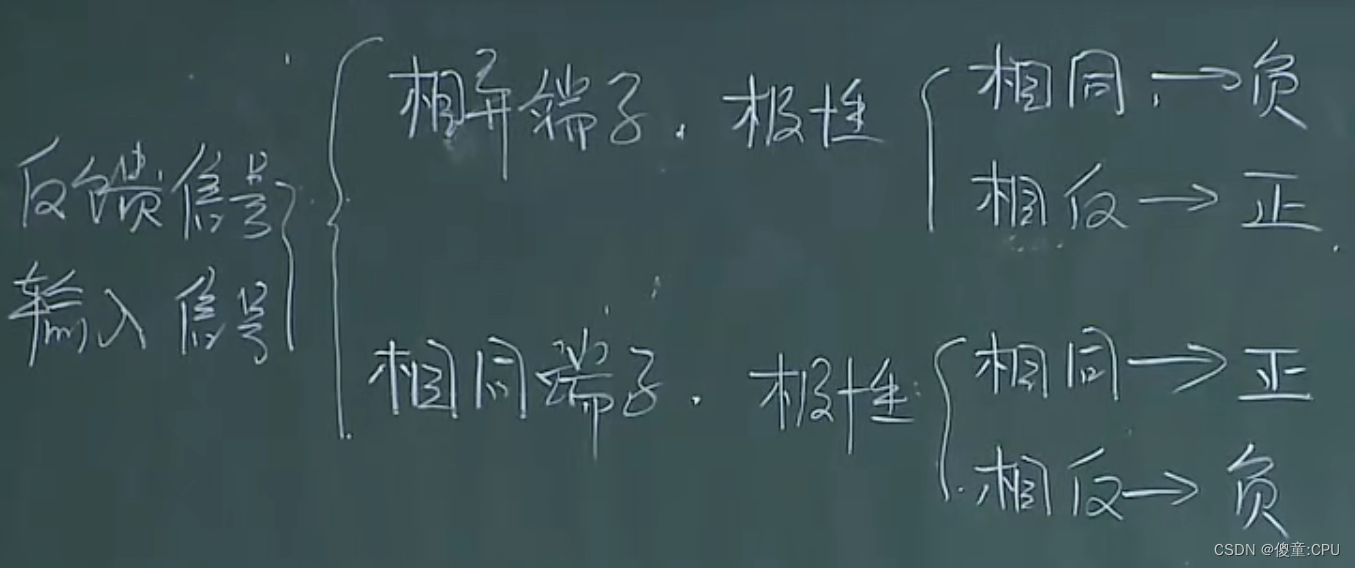 反馈信号
输入信号
相异端子. 极性
相同 → 负
相反 → 正
相同端子. 极性
相同 → 正
相反 → 负
CSDN @傻童:CPU